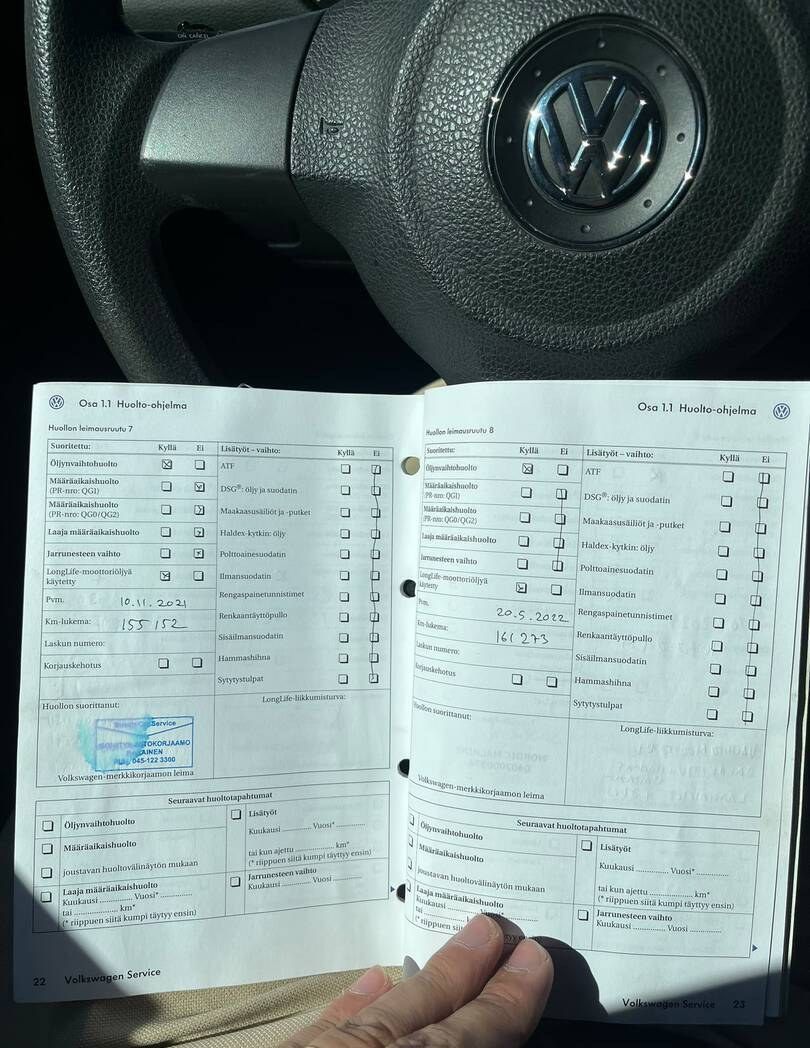 Osa 1.1 Huolto-ohjelma
Huollon leimausruutu 7
Suoritettu: Kyllä Ei Lisätyöt – vaihto: Kyllä Ei
Öljynvaihtohuolto ATF
Määräaikaishuolto
(PR-nro: QGI) DSG®: öljy ja suodatin
Määräaikaishuolto
(PR-nro: QG0/QG2) Maakaasusäiliöt ja -putket
Laaja määräaikaishuolto Haldex-kytkin: öljy
Jarrunesteen vaihto Polttoainesuodatin
LongLife-moottoriöljyä
käytetty Ilmansuodatin
Pvm. 10.11.2021 Rengaspainetunnistimet
Km-lukema: 155 152 Renkaantäyttöpullo
Laskun numero: Sisäilmansuodatin
Korjauskehotus Hammashihna
Sytytystulpat
Huollon suorittanut: LongLife-liikkumisturva:
Service
AUTOKORJAAMO
045-122 3300
Volkswagen-merkkikorjaamon leima
Seuraavat huoltotapahtumat
Öljynvaihtohuolto Lisätyöt
Määräaikaishuolto Kuukausi .............. Vuosi* ............
joustavan huoltovälinäytön mukaan tai kun ajettu ..................... km*
(* riippuen siitä kumpi täyttyy ensin)
Laaja määräaikaishuolto Jarrunesteen vaihto
Kuukausi .............. Vuosi* ............ Kuukausi .............. Vuosi ............
tai ..................... km*
(* riippuen siitä kumpi täyttyy ensin)
22 Volkswagen Service
Osa 1.1 Huolto-ohjelma
Huollon leimausruutu 8
Suoritettu: Kyllä Ei Lisätyöt – vaihto: Kyllä Ei
Öljynvaihtohuolto ATF
Määräaikaishuolto
(PR-nro: QGI) DSG®: öljy ja suodatin
Määräaikaishuolto
(PR-nro: QG0/QG2) Maakaasusäiliöt ja -putket
Laaja määräaikaishuolto Haldex-kytkin: öljy
Jarrunesteen vaihto Polttoainesuodatin
LongLife-moottoriöljyä
käytetty Ilmansuodatin
Pvm. 20.5.2022 Rengaspainetunnistimet
Km-lukema: 161 273 Renkaantäyttöpullo
Laskun numero: Sisäilmansuodatin
Korjauskehotus Hammashihna
Sytytystulpat
Huollon suorittanut: LongLife-liikkumisturva:
Volkswagen-merkkikorjaamon leima
Seuraavat huoltotapahtumat
Öljynvaihtohuolto Lisätyöt
Määräaikaishuolto Kuukausi .............. Vuosi* ............
joustavan huoltovälinäytön mukaan tai kun ajettu ..................... km*
(* riippuen siitä kumpi täyttyy ensin)
Laaja määräaikaishuolto Jarrunesteen vaihto
Kuukausi .............. Vuosi* ............ Kuukausi .............. Vuosi ............
tai
(* riippuen
Volkswagen Service 23